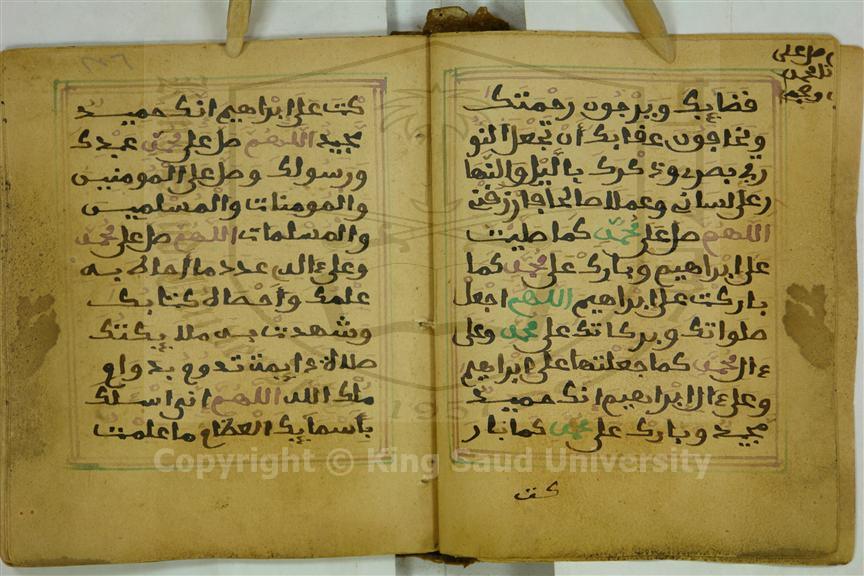 صل على
قضايك ويرجون رحمتك
ويخافون عذابك أن تجعل النو
ر في بصري وذكرك بالليل والنها
ر على لساني وعملا صالحا فارزقني
اللهم صل على محمد كما صليت
على ابراهيم وبارك على محمد كما
باركت على ابراهيم اللهم اجعل
صلواتك وبركاتك على محمد وعلى
ءال محمد كما جعلتها على ابراهيم
وعلى ءال ابراهيم إنك حميد
مجيد وبارك على محمد كما بار
كت
كت على ابراهيم انك حميد
مجيد اللهم صل على محمد عبدك
ورسولك وصل على المومنين
والمومنات والمسلمين
والمسلمات اللهم صل على محمد
وعلى ءاله عدد ما أحاط به
علمك وأحصاه كتابك
وشهدت به ملايكتك
صلاة دايمة تدوم بدوام
ملك الله اللهم إني اسئلك
بأسمايك العظام ما علمت
1957
Copyright © King Saud University